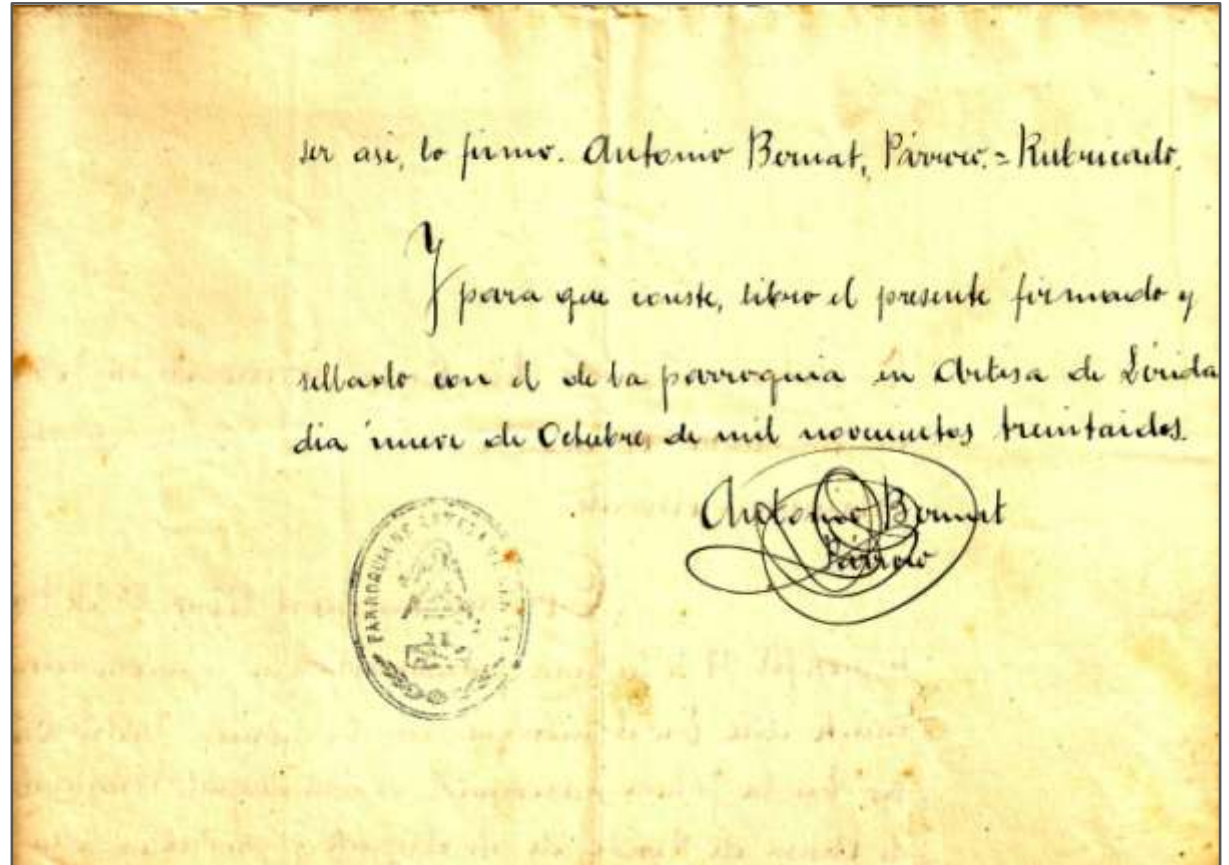 ser asi, lo firmo. Antonio Bernat, Párroco. = Rubricado.
Y para que conste, libro el presente firmado y
sellado con el de la parroquia en Artesa de Lérida
dia nueve de Octubre de mil novecientos treintaidos.
Antonio Bernat
Párroco
PARROQUIA DE ARTESA DE